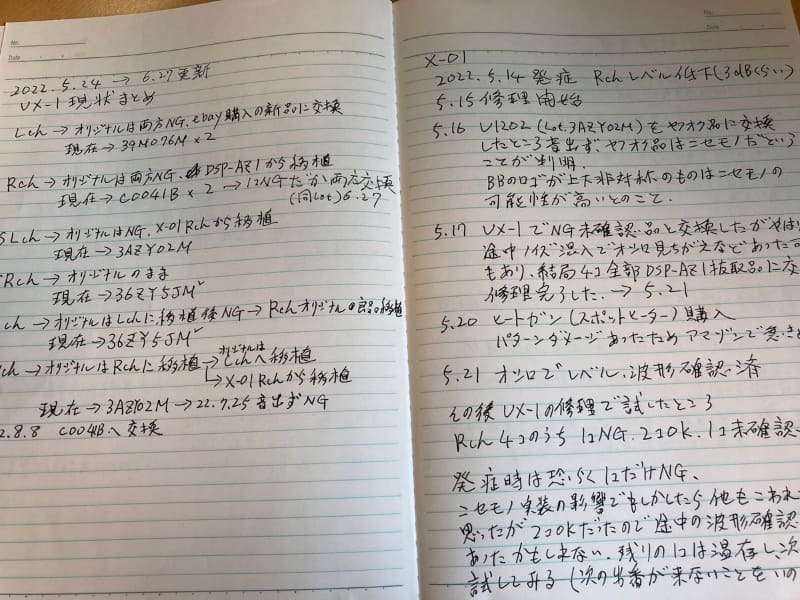 No.
Date
2022.5.24 → 6.27更新
UX-1 現状まとめ
Lch → オリジナルは両方NG、ebay購入の新品に交換
現在 → 39M076M × 2
Rch → オリジナルは両方NG、DSP-AZ1から移植
現在 → C0041B × 2 → 1コNGだが両方交換
(同Lot) 6.27
S Lch → オリジナルはNG、X-01 Rchから移植
現在 → 3AZY02M
Rch → オリジナルのまま
現在 → 36ZY5JM
ch → オリジナルはLchに移植後NG → Rchオリジナルの良品移植
現在 → 36ZY5JM
ch → オリジナルはRchに移植 → オリジナルはLchへ移植
→ X-01 Rchから移植
現在 → 3AZY02M → 22.7.25 音出ずNG
2.8.8 C0041Bへ交換
No.
Date
X-01
2022.5.14 発症 Rchレベル低下(3dBくらい)
5.15 修理開始
5.16 U1202 (Lot.3AZY02M) をヤフオク品に交換
したところ音出ず。ヤフオク品はニセモノだという
ことが判明。
BBのロゴが上下非対称のものはニセモノの
可能性が高いとのこと。
5.17 UX-1でNG未確認品と交換したがやはり
途中ノイズ混入でオシロ見ちがえなどあった可
もあり、結局4コ全部DSP-AZ1抜取品に交
修理完了した。→ 5.21
5.20 ヒートガン(スポットヒーター)購入
パターンダメージあったためアマゾンで急きょ
5.21 オシロでレベル、波形確認済
その後UX-1の修理で試したところ
Rch 4コのうち1コNG、2コOK、1コ未確認
発症時は恐らく1コだけNG、
ニセモノ実装の影響でもしかしたら他もこわれ
思ったが2コOKだったので途中の波形確認
あったかもしれない。残りの1コは温存し、次
試してみる(次の出番が来ないことをいの